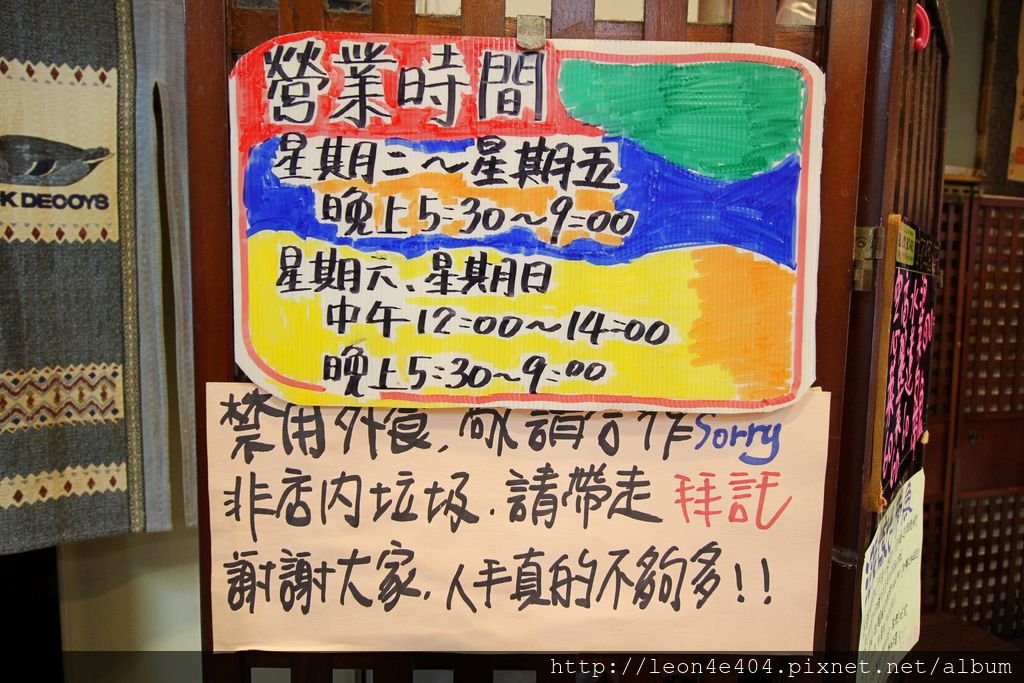 營業時間
星期二～星期五
晚上5:30～9:00
星期六、星期日
中午12:00～14:00
晚上5:30～9:00
禁用外食,敬請合作Sorry
非店內垃圾.請帶走 拜託
謝謝大家,人手真的不夠多!!
K DECOYS
http://leon4e404.pixnet.net/album